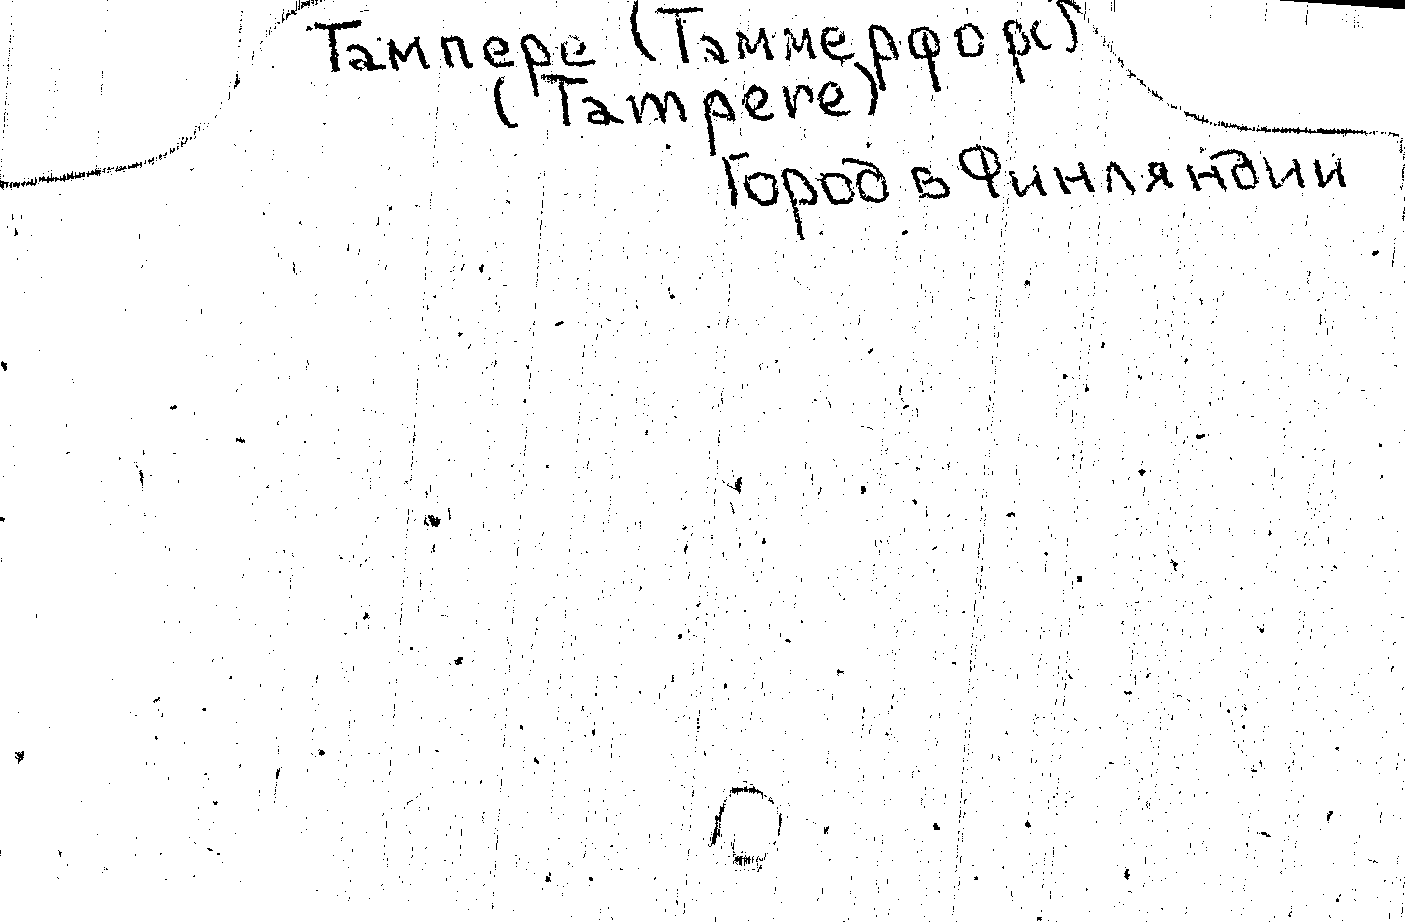 Тампере (Таммерфорс)
(Tampere)
Город в Финляндии